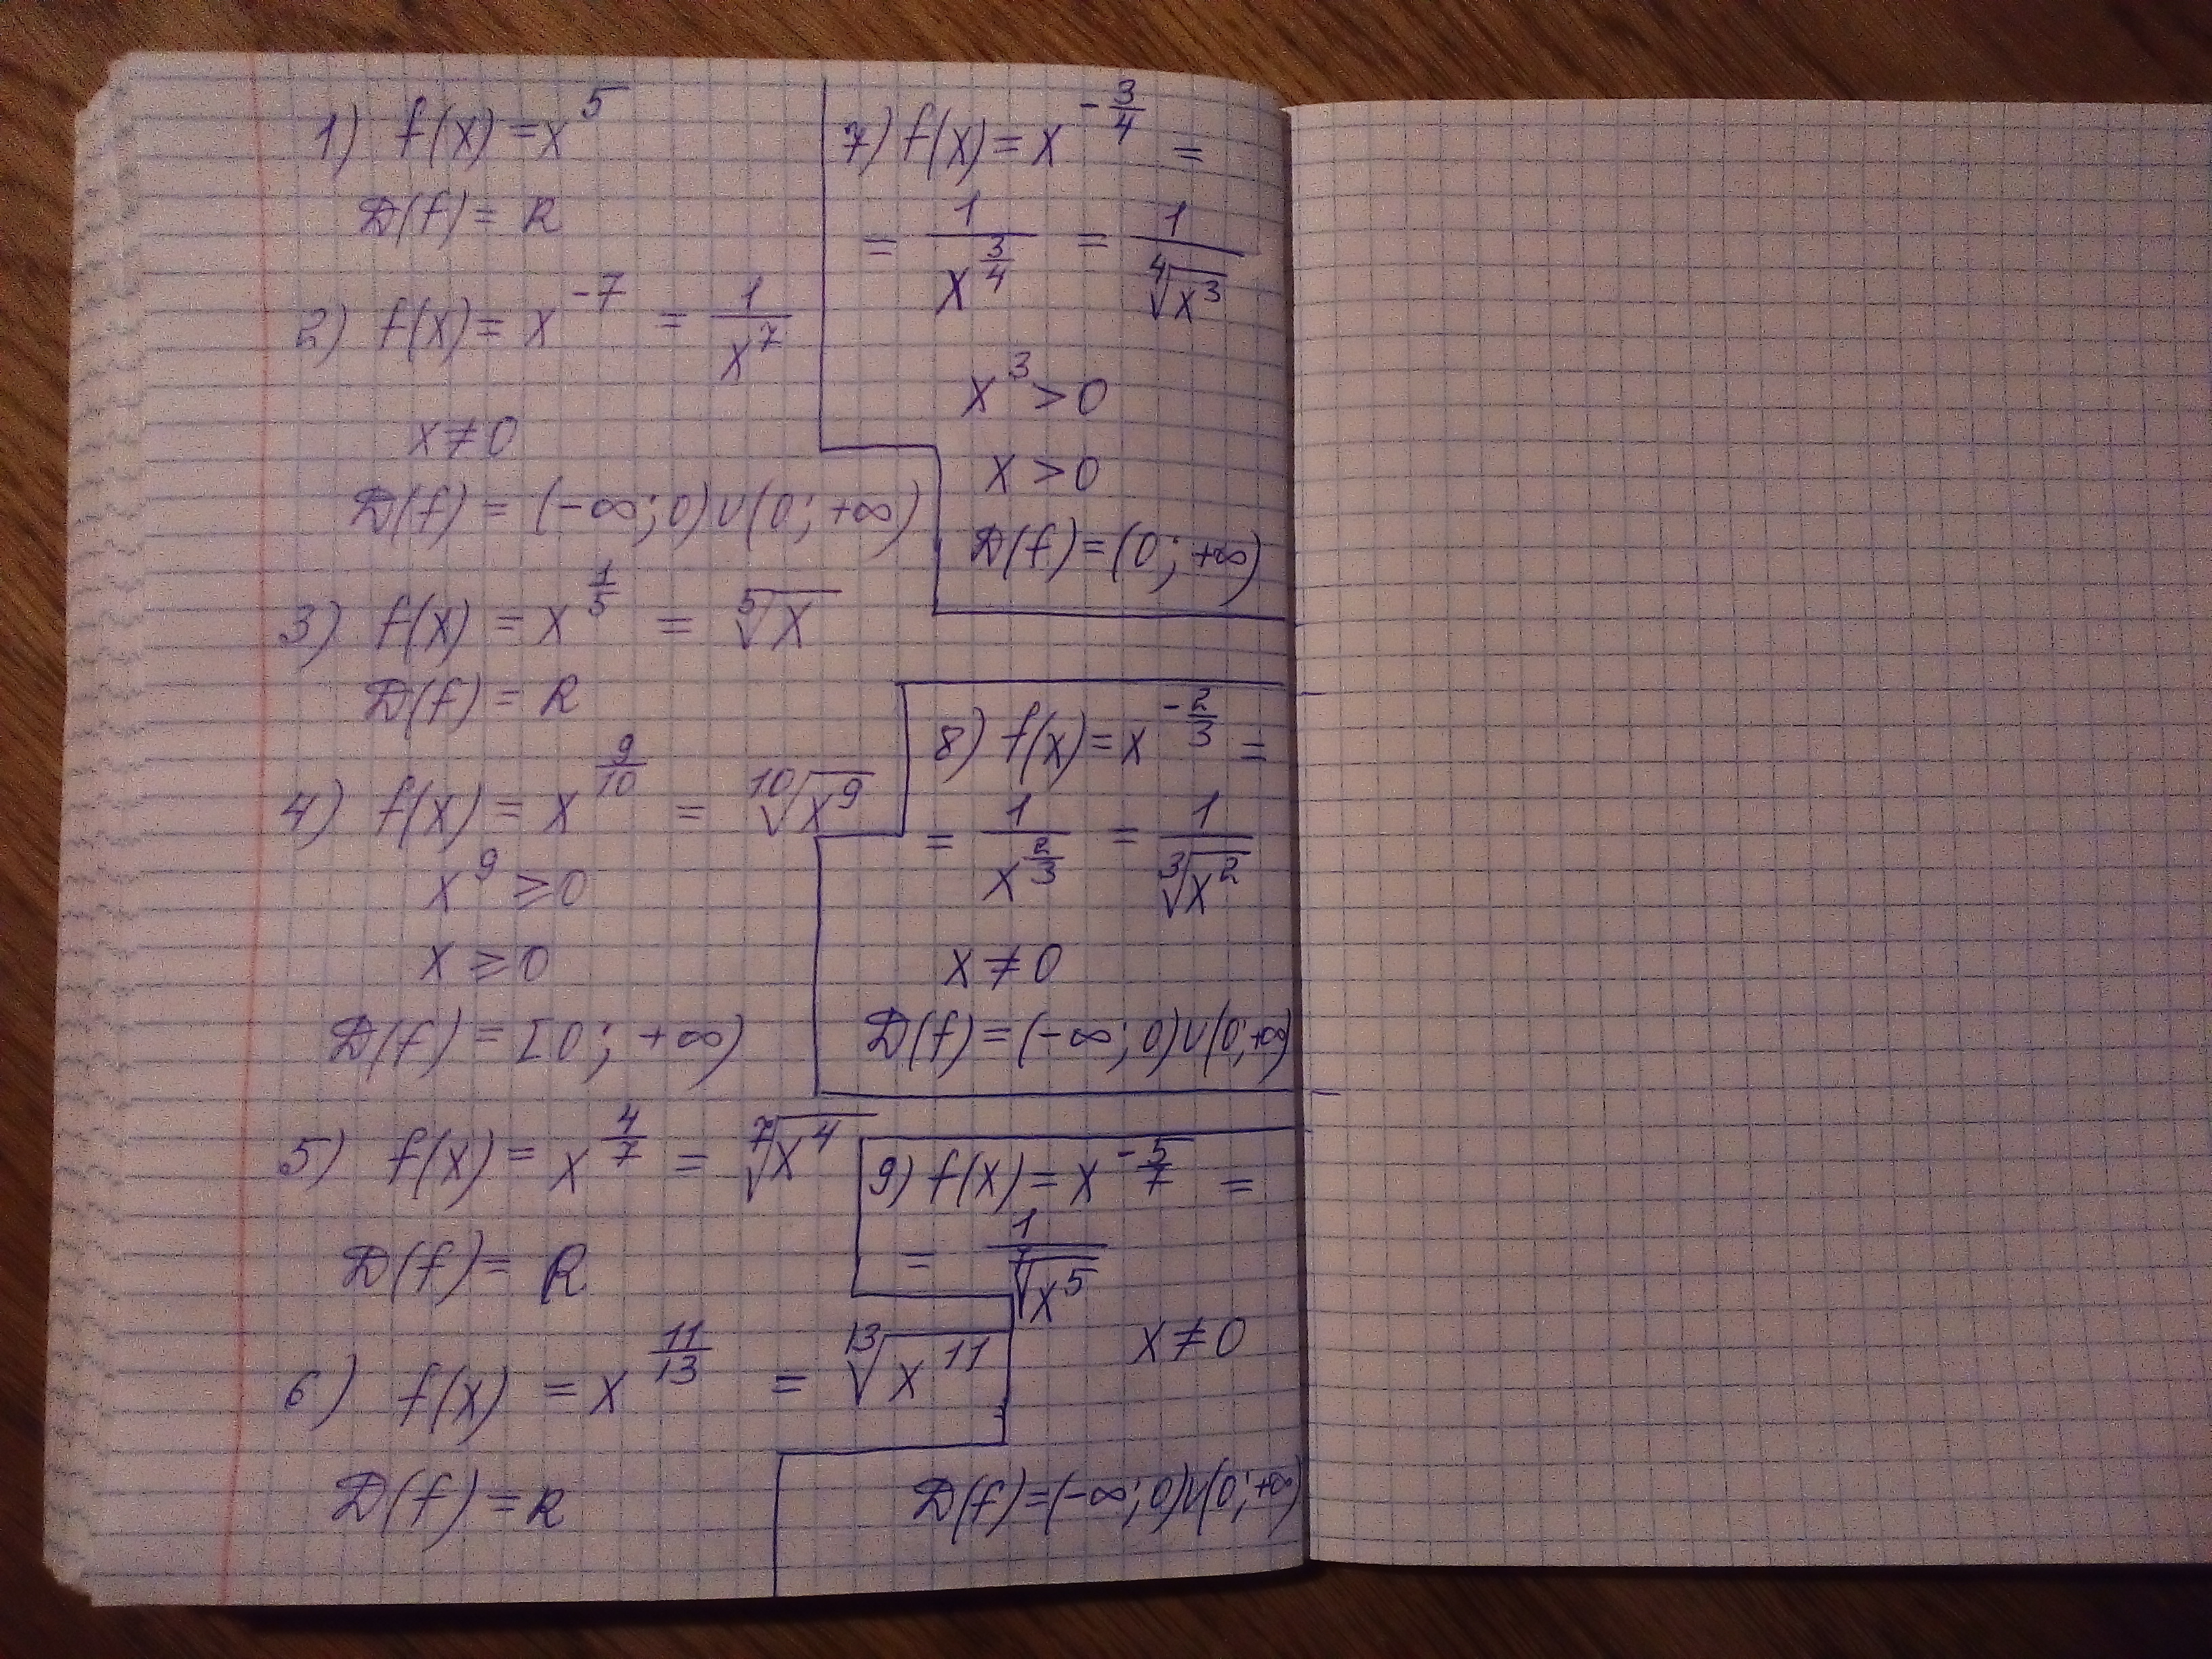 1) f(x) = x^5
D(f) = R
2) f(x) = x^{-7} = \frac{1}{x^7}
x ≠ 0
D(f) = (-∞; 0) ∪ (0; +∞)
3) f(x) = x^{\frac{1}{5}} = \sqrt[5]{x}
D(f) = R
4) f(x) = x^{\frac{9}{10}} = \sqrt[10]{x^9}
x^9 ≥ 0
x ≥ 0
D(f) = [0; +∞)
5) f(x) = x^{\frac{4}{7}} = \sqrt[7]{x^4}
D(f) = R
6) f(x) = x^{\frac{11}{13}} = \sqrt[13]{x^{11}}
D(f) = R
7) f(x) = x^{-\frac{3}{4}} =
= \frac{1}{x^{\frac{3}{4}}} = \frac{1}{\sqrt[4]{x^3}}
x^3 > 0
x > 0
D(f) = (0; +∞)
8) f(x) = x^{-\frac{2}{3}} =
= \frac{1}{x^{\frac{2}{3}}} = \frac{1}{\sqrt[3]{x^2}}
x ≠ 0
D(f) = (-∞; 0) ∪ (0; +∞)
9) f(x) = x^{-\frac{5}{7}} =
= \frac{1}{\sqrt[7]{x^5}}
x ≠ 0
D(f) = (-∞; 0) ∪ (0; +∞)